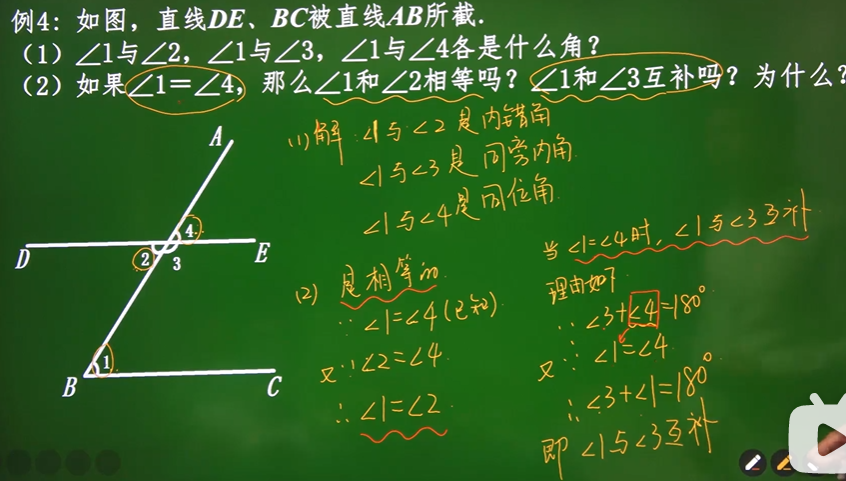 例4：如图，直线DE、BC被直线AB所截.
（1）∠1与∠2，∠1与∠3，∠1与∠4各是什么角？
（2）如果∠1＝∠4，那么∠1和∠2相等吗？∠1和∠3互补吗？为什么？
A
D
E
B
C
4
2
3
1
(1)解 ∠1与∠2是内错角
∠1与∠3是同旁内角
∠1与∠4是同位角
(2) 是相等的
∵∠1=∠4(已知)
又∵∠2=∠4
∴∠1=∠2
当∠1=∠4时，∠1与∠3互补
理由如下
∵∠3+∠4=180°
又∵∠1=∠4
∴∠3+∠1=180°
即∠1与∠3互补